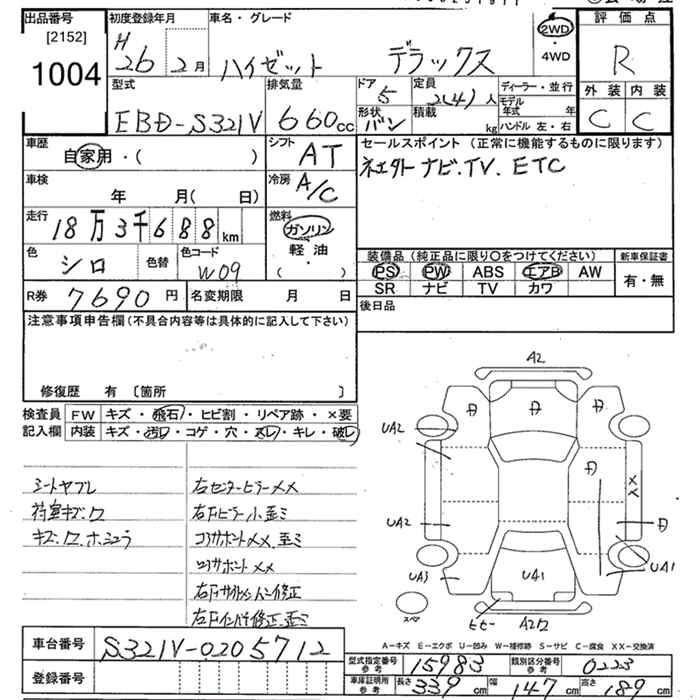 出品番号
[2152]
1004
初度登録年月
H
26 2月
車名・グレード
ハイゼット デラックス
2WD
・
4WD
評価点
R
外装 内装
C C
型式
EBD-S321V
排気量
660cc
ドア
5
形状
バン
定員
2(4)人
積載
kg
ディーラー・並行
モデル
年式 年
ハンドル 左・右
車歴
自家用・( )
シフト
AT
車検
年 月( 日)
冷房
A/C
走行
18万3千688km
燃料
ガソリン
軽油
( ・ )
色
シロ
色替
色コード
W09
R券 7690円
名変期限 月 日
セールスポイント(正常に機能するものに限ります)
ナビ.TV. ETC
装備品(純正品に限り○をつけてください)
PS PW ABS エアB AW
SR ナビ TV カワ
新車保証書
有・無
後日品
注意事項申告欄(不具合内容等は具体的に記入して下さい)
修復歴 有 〔箇所 〕
検査員
記入欄
FW キズ・飛石・ヒビ割・リペア跡・×要
内装 キズ・汚レ・コゲ・穴・スレ・キレ・破レ
シートヤブレ
荷室キズ.ワ
右センターピラーXX
コアサポートXX.歪ミ
右Fインパネ修正.歪ミ
A2
UA2
UA2
UA3
UA1
UA1
XX
スペア
A2ワ
A-キズ E-エクボ U-凹み W-補修跡 S-サビ C-腐食 XX-交換済
車台番号
S321V-0205712
登録番号
型式指定番号
参考
15983
類別区分番号
参考
0223
車庫証明用
参考
長さ 339cm 幅 147cm 高さ 189cm